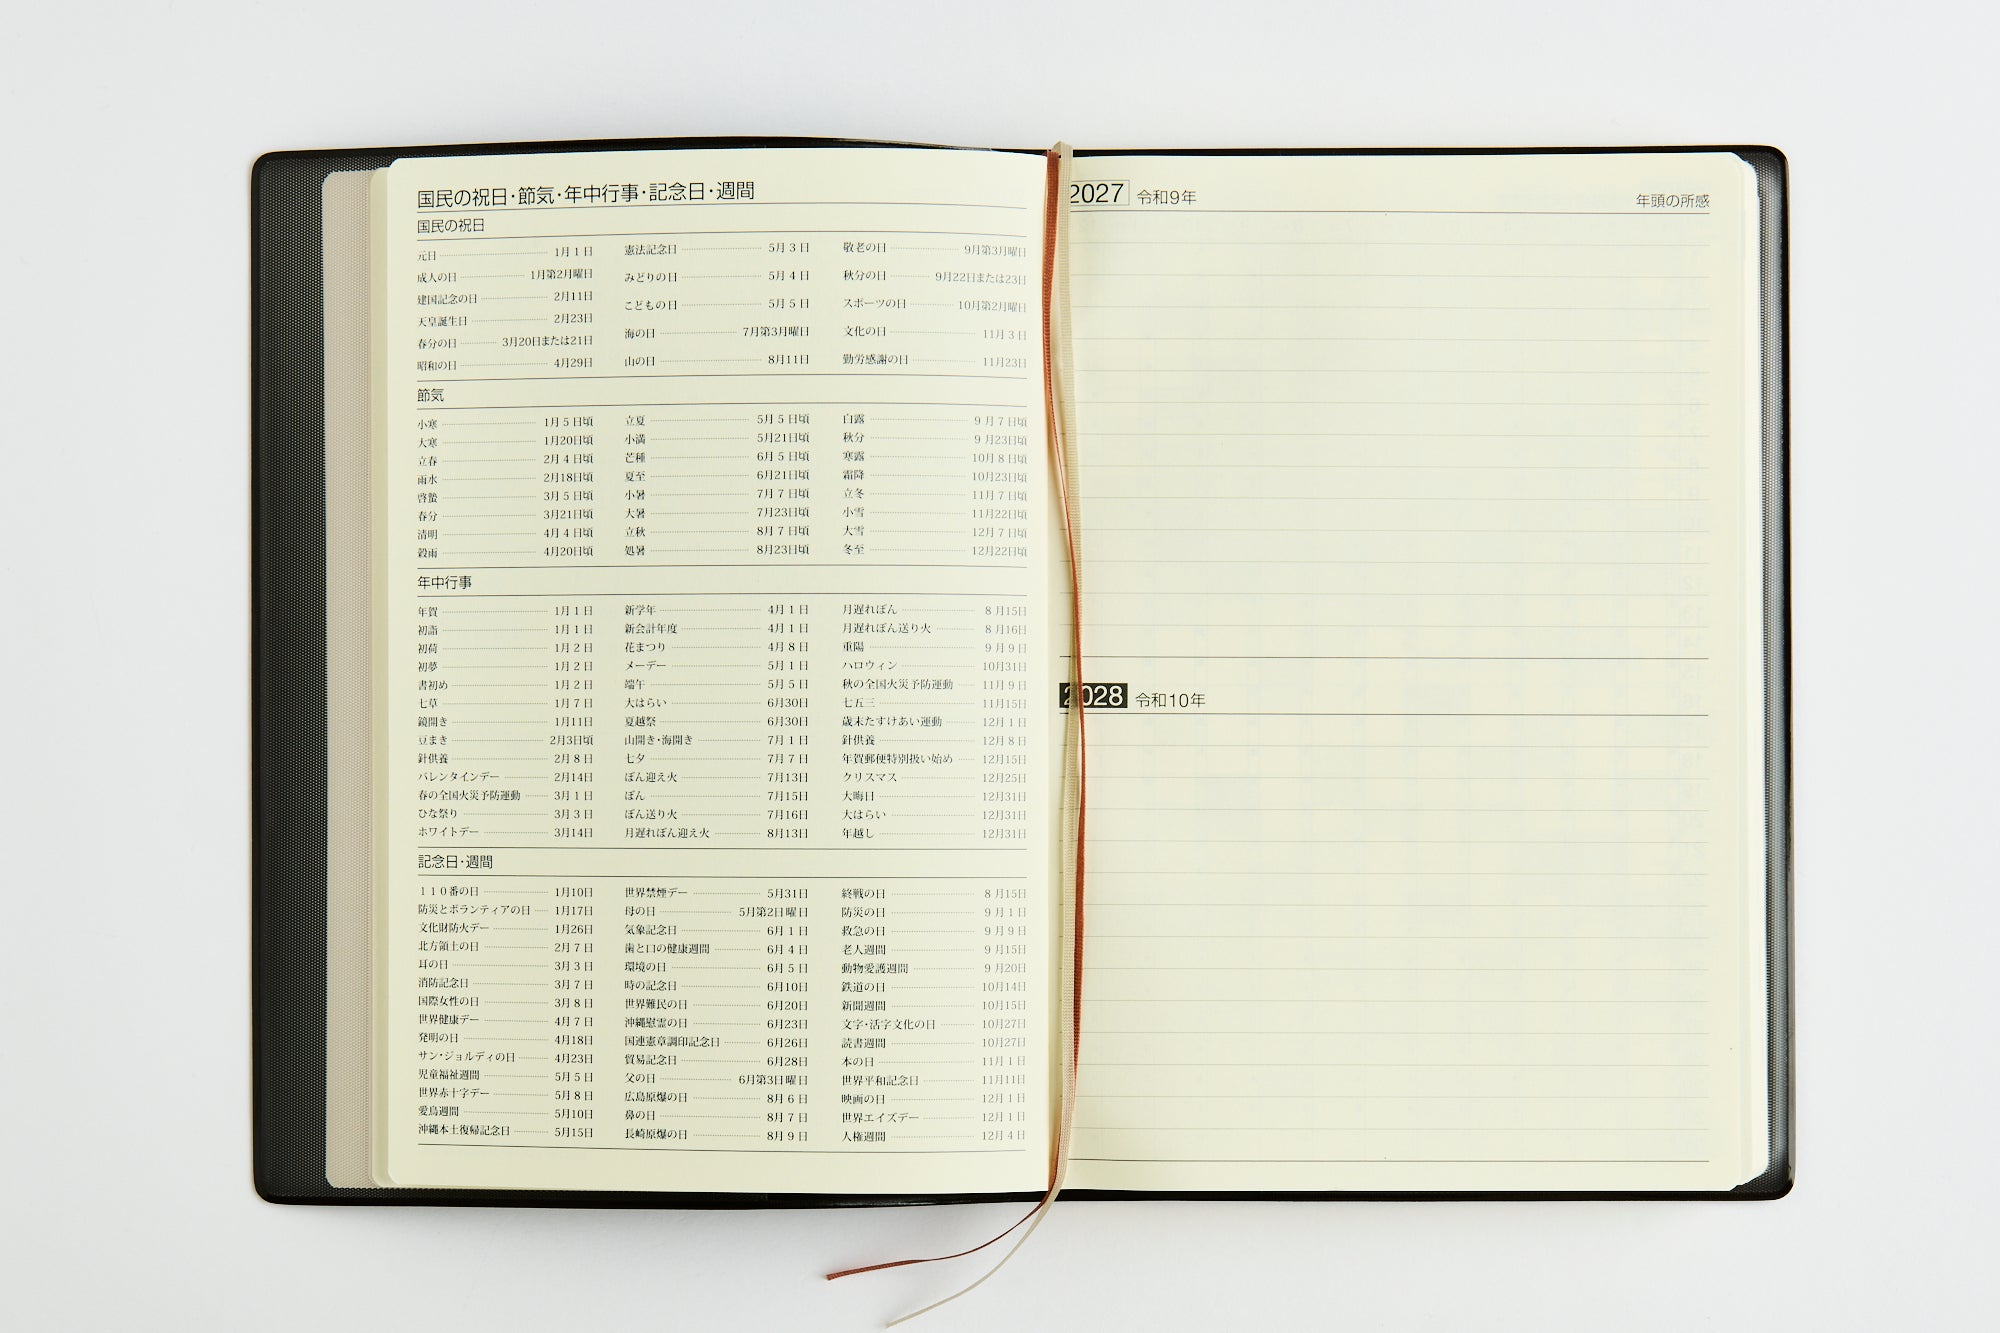 国民の祝日・節気・年中行事・記念日・週間
国民の祝日
元日 1月1日
成人の日 1月第2月曜日
建国記念の日 2月11日
天皇誕生日 2月23日
春分の日 3月20日または21日
昭和の日 4月29日
憲法記念日 5月3日
みどりの日 5月4日
こどもの日 5月5日
海の日 7月第3月曜日
山の日 8月11日
敬老の日 9月第3月曜日
秋分の日 9月22日または23日
スポーツの日 10月第2月曜日
文化の日 11月3日
勤労感謝の日 11月23日
節気
小寒 1月5日頃
大寒 1月20日頃
立春 2月4日頃
雨水 2月18日頃
啓蟄 3月5日頃
春分 3月21日頃
清明 4月4日頃
穀雨 4月20日頃
立夏 5月5日頃
小満 5月21日頃
芒種 6月5日頃
夏至 6月21日頃
小暑 7月7日頃
大暑 7月23日頃
立秋 8月7日頃
処暑 8月23日頃
白露 9月7日頃
秋分 9月23日頃
寒露 10月8日頃
霜降 10月23日頃
立冬 11月7日頃
小雪 11月22日頃
大雪 12月7日頃
冬至 12月22日頃
年中行事
年賀 1月1日
初詣 1月1日
初荷 1月2日
初夢 1月2日
書初め 1月2日
七草 1月7日
鏡開き 1月11日
豆まき 2月3日頃
針供養 2月8日
バレンタインデー 2月14日
春の全国火災予防運動 3月1日
ひな祭り 3月3日
ホワイトデー 3月14日
新学年 4月1日
新会計年度 4月1日
花まつり 4月8日
メーデー 5月1日
端午 5月5日
大はらい 6月30日
夏越祭 6月30日
山開き・海開き 7月1日
七夕 7月7日
ぼん迎え火 7月13日
ぼん 7月15日
ぼん送り火 7月16日
月遅れぼん迎え火 8月13日
月遅れぼん 8月15日
月遅れぼん送り火 8月16日
重陽 9月9日
ハロウィン 10月31日
秋の全国火災予防運動 11月9日
七五三 11月15日
歳末たすけあい運動 12月1日
針供養 12月8日
年賀郵便特別扱い始め 12月15日
クリスマス 12月25日
大晦日 12月31日
大はらい 12月31日
年越し 12月31日
記念日・週間
110番の日 1月10日
防災とボランティアの日 1月17日
文化財防火デー 1月26日
北方領土の日 2月7日
耳の日 3月3日
消防記念日 3月7日
国際女性の日 3月8日
世界健康デー 4月7日
発明の日 4月18日
サン・ジョルディの日 4月23日
児童福祉週間 5月5日
世界赤十字デー 5月8日
愛鳥週間 5月10日
沖縄本土復帰記念日 5月15日
世界禁煙デー 5月31日
母の日 5月第2日曜日
気象記念日 6月1日
歯と口の健康週間 6月4日
環境の日 6月5日
時の記念日 6月10日
世界難民の日 6月20日
沖縄慰霊の日 6月23日
国連憲章調印記念日 6月26日
貿易記念日 6月28日
父の日 6月第3日曜日
広島原爆の日 8月6日
鼻の日 8月7日
長崎原爆の日 8月9日
終戦の日 8月15日
防災の日 9月1日
救急の日 9月9日
老人週間 9月15日
動物愛護週間 9月20日
鉄道の日 10月14日
新聞週間 10月15日
文字・活字文化の日 10月27日
読書週間 10月27日
本の日 11月1日
世界平和記念日 11月11日
映画の日 12月1日
世界エイズデー 12月1日
人権週間 12月4日
2027 令和9年 年頭の所感
2028 令和10年